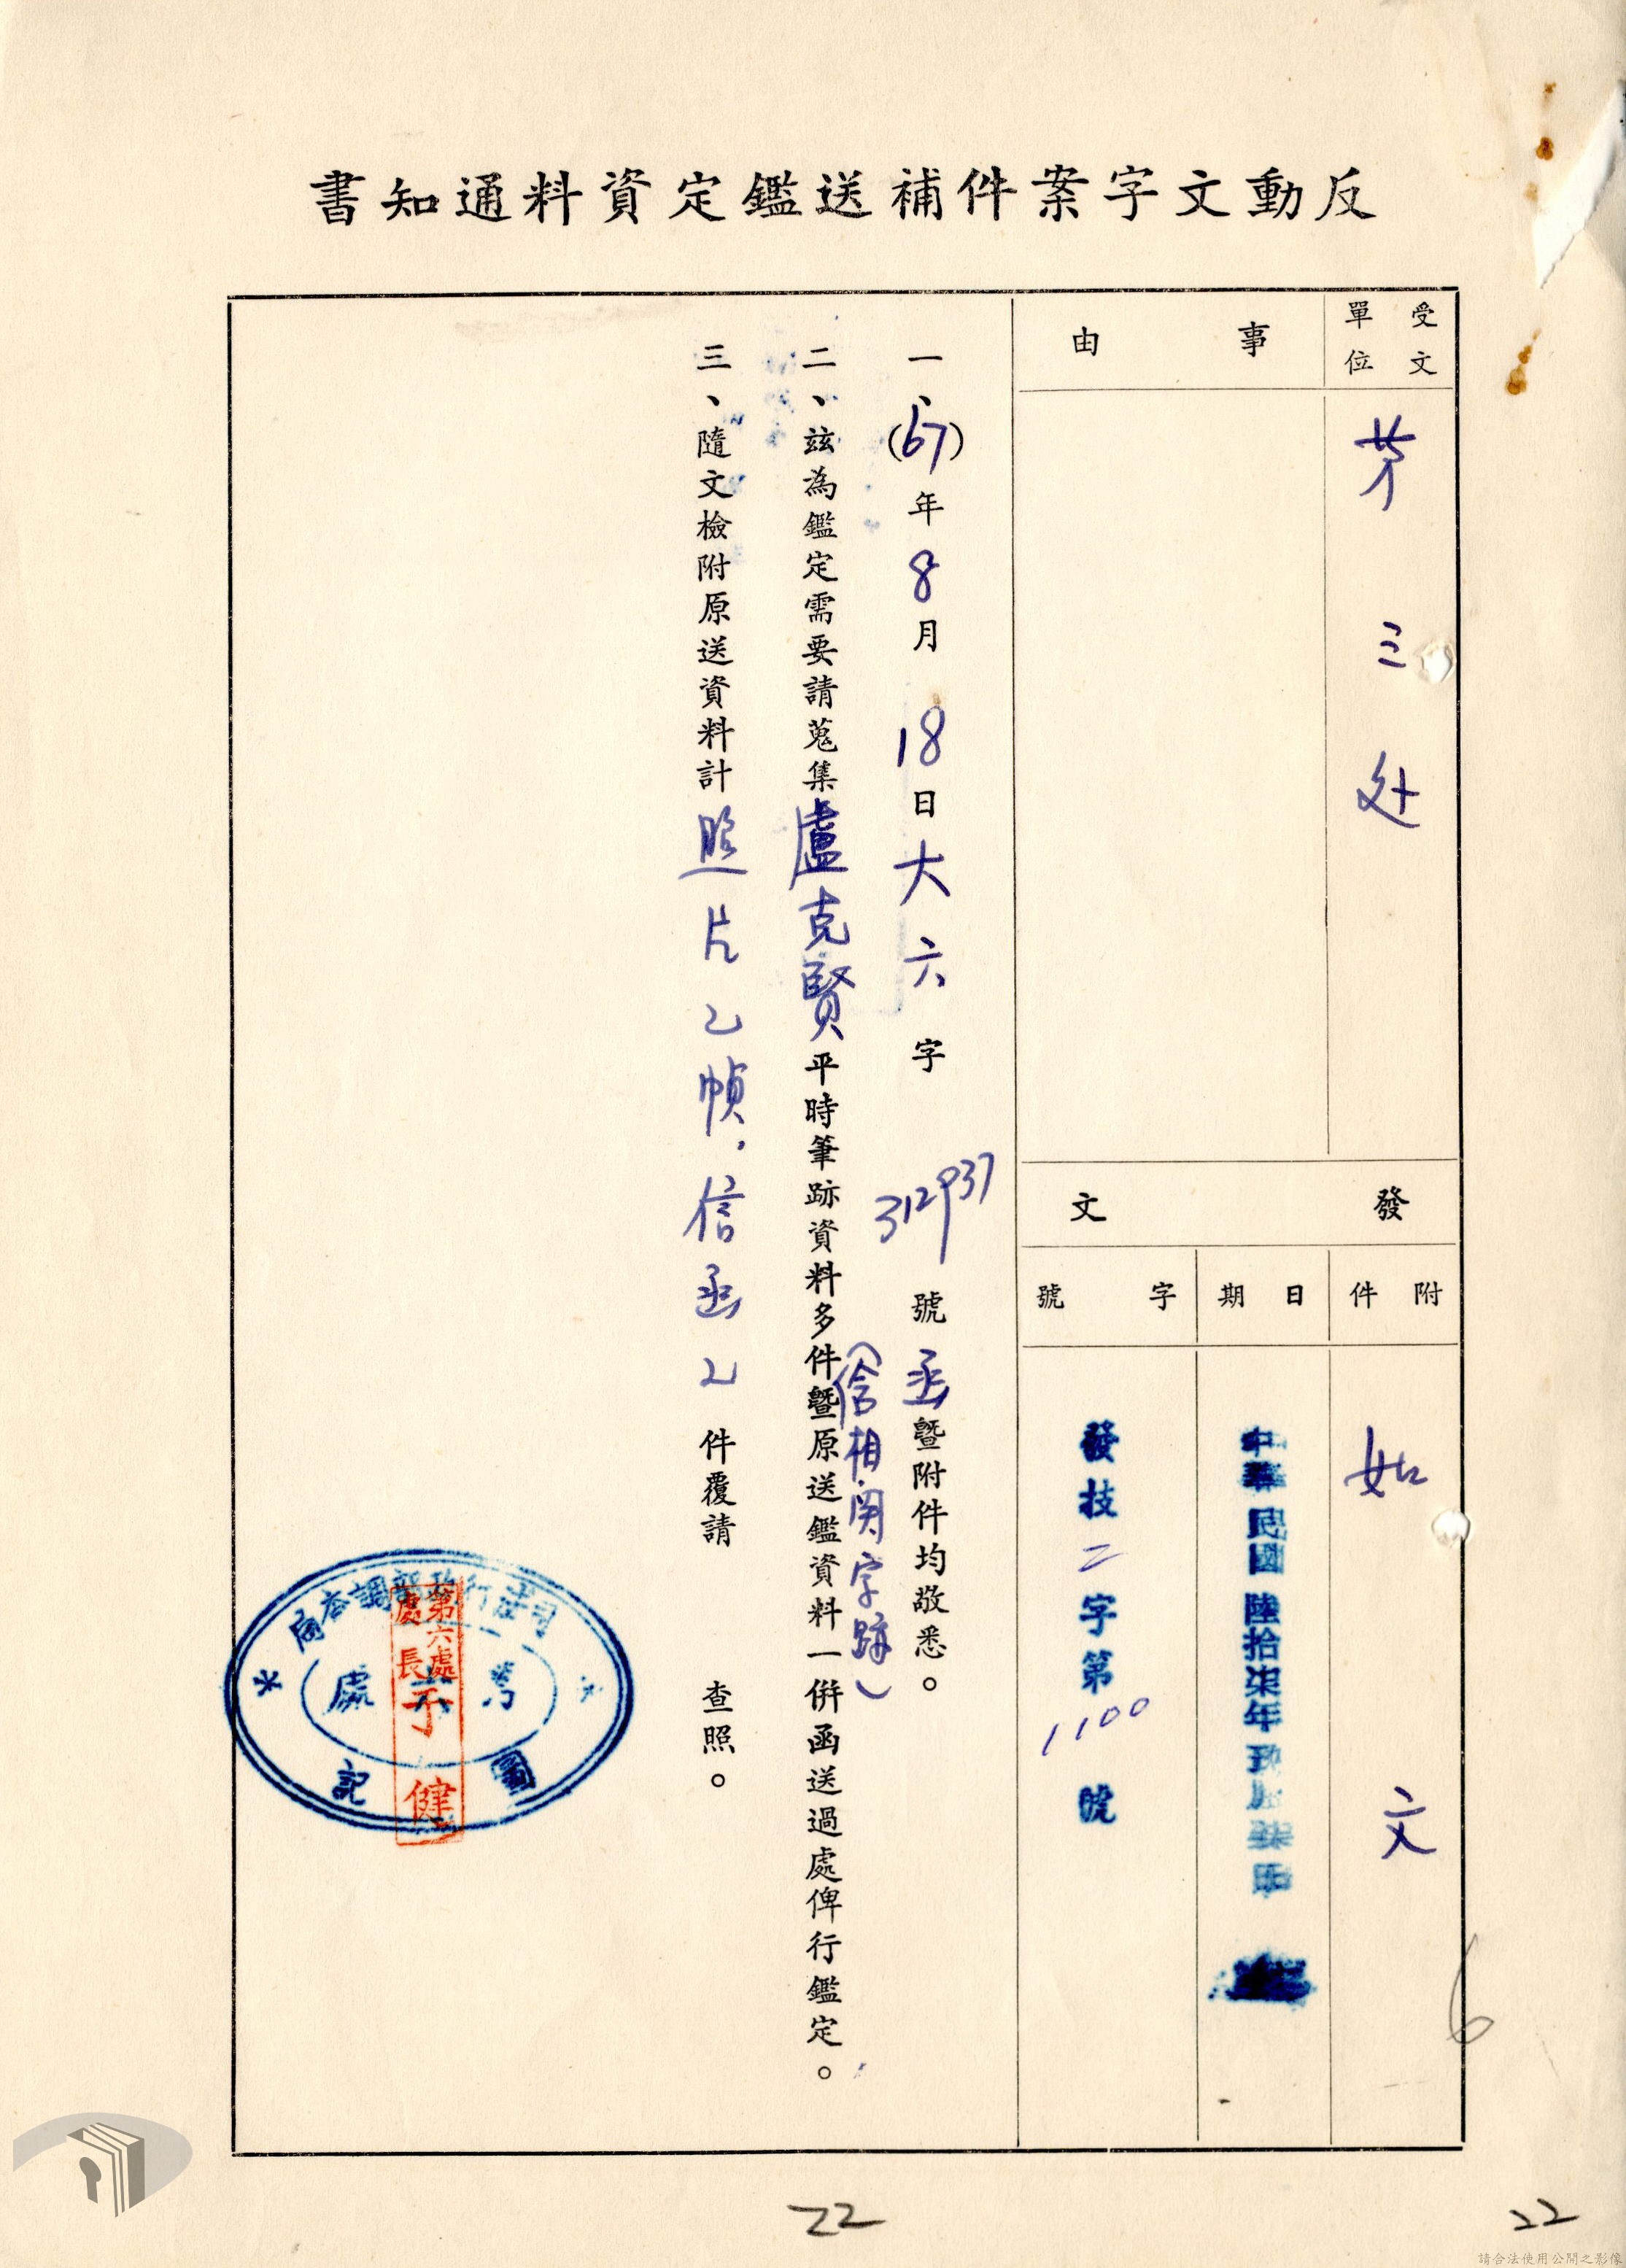 反動文字案件補送鑑定資料通知書
受文單位
第三处
事由
發文
附件
如文
日期
中華民國陸拾柒年玖月柒日
字號
發技二字第1100號
一、(67)年8月18日大六字312937號函暨附件均敬悉。
二、茲為鑑定需要請蒐集盧克賢平時筆跡資料多件暨原送鑑資料一併函送過處俾行鑑定。
(含相関字跡)
三、隨文檢附原送資料計照片乙幀，信函乙件覆請查照。
司法行政部調查局
第六處
圖記
第六處
處長于健
6
22
22
請合法使用公開之影像